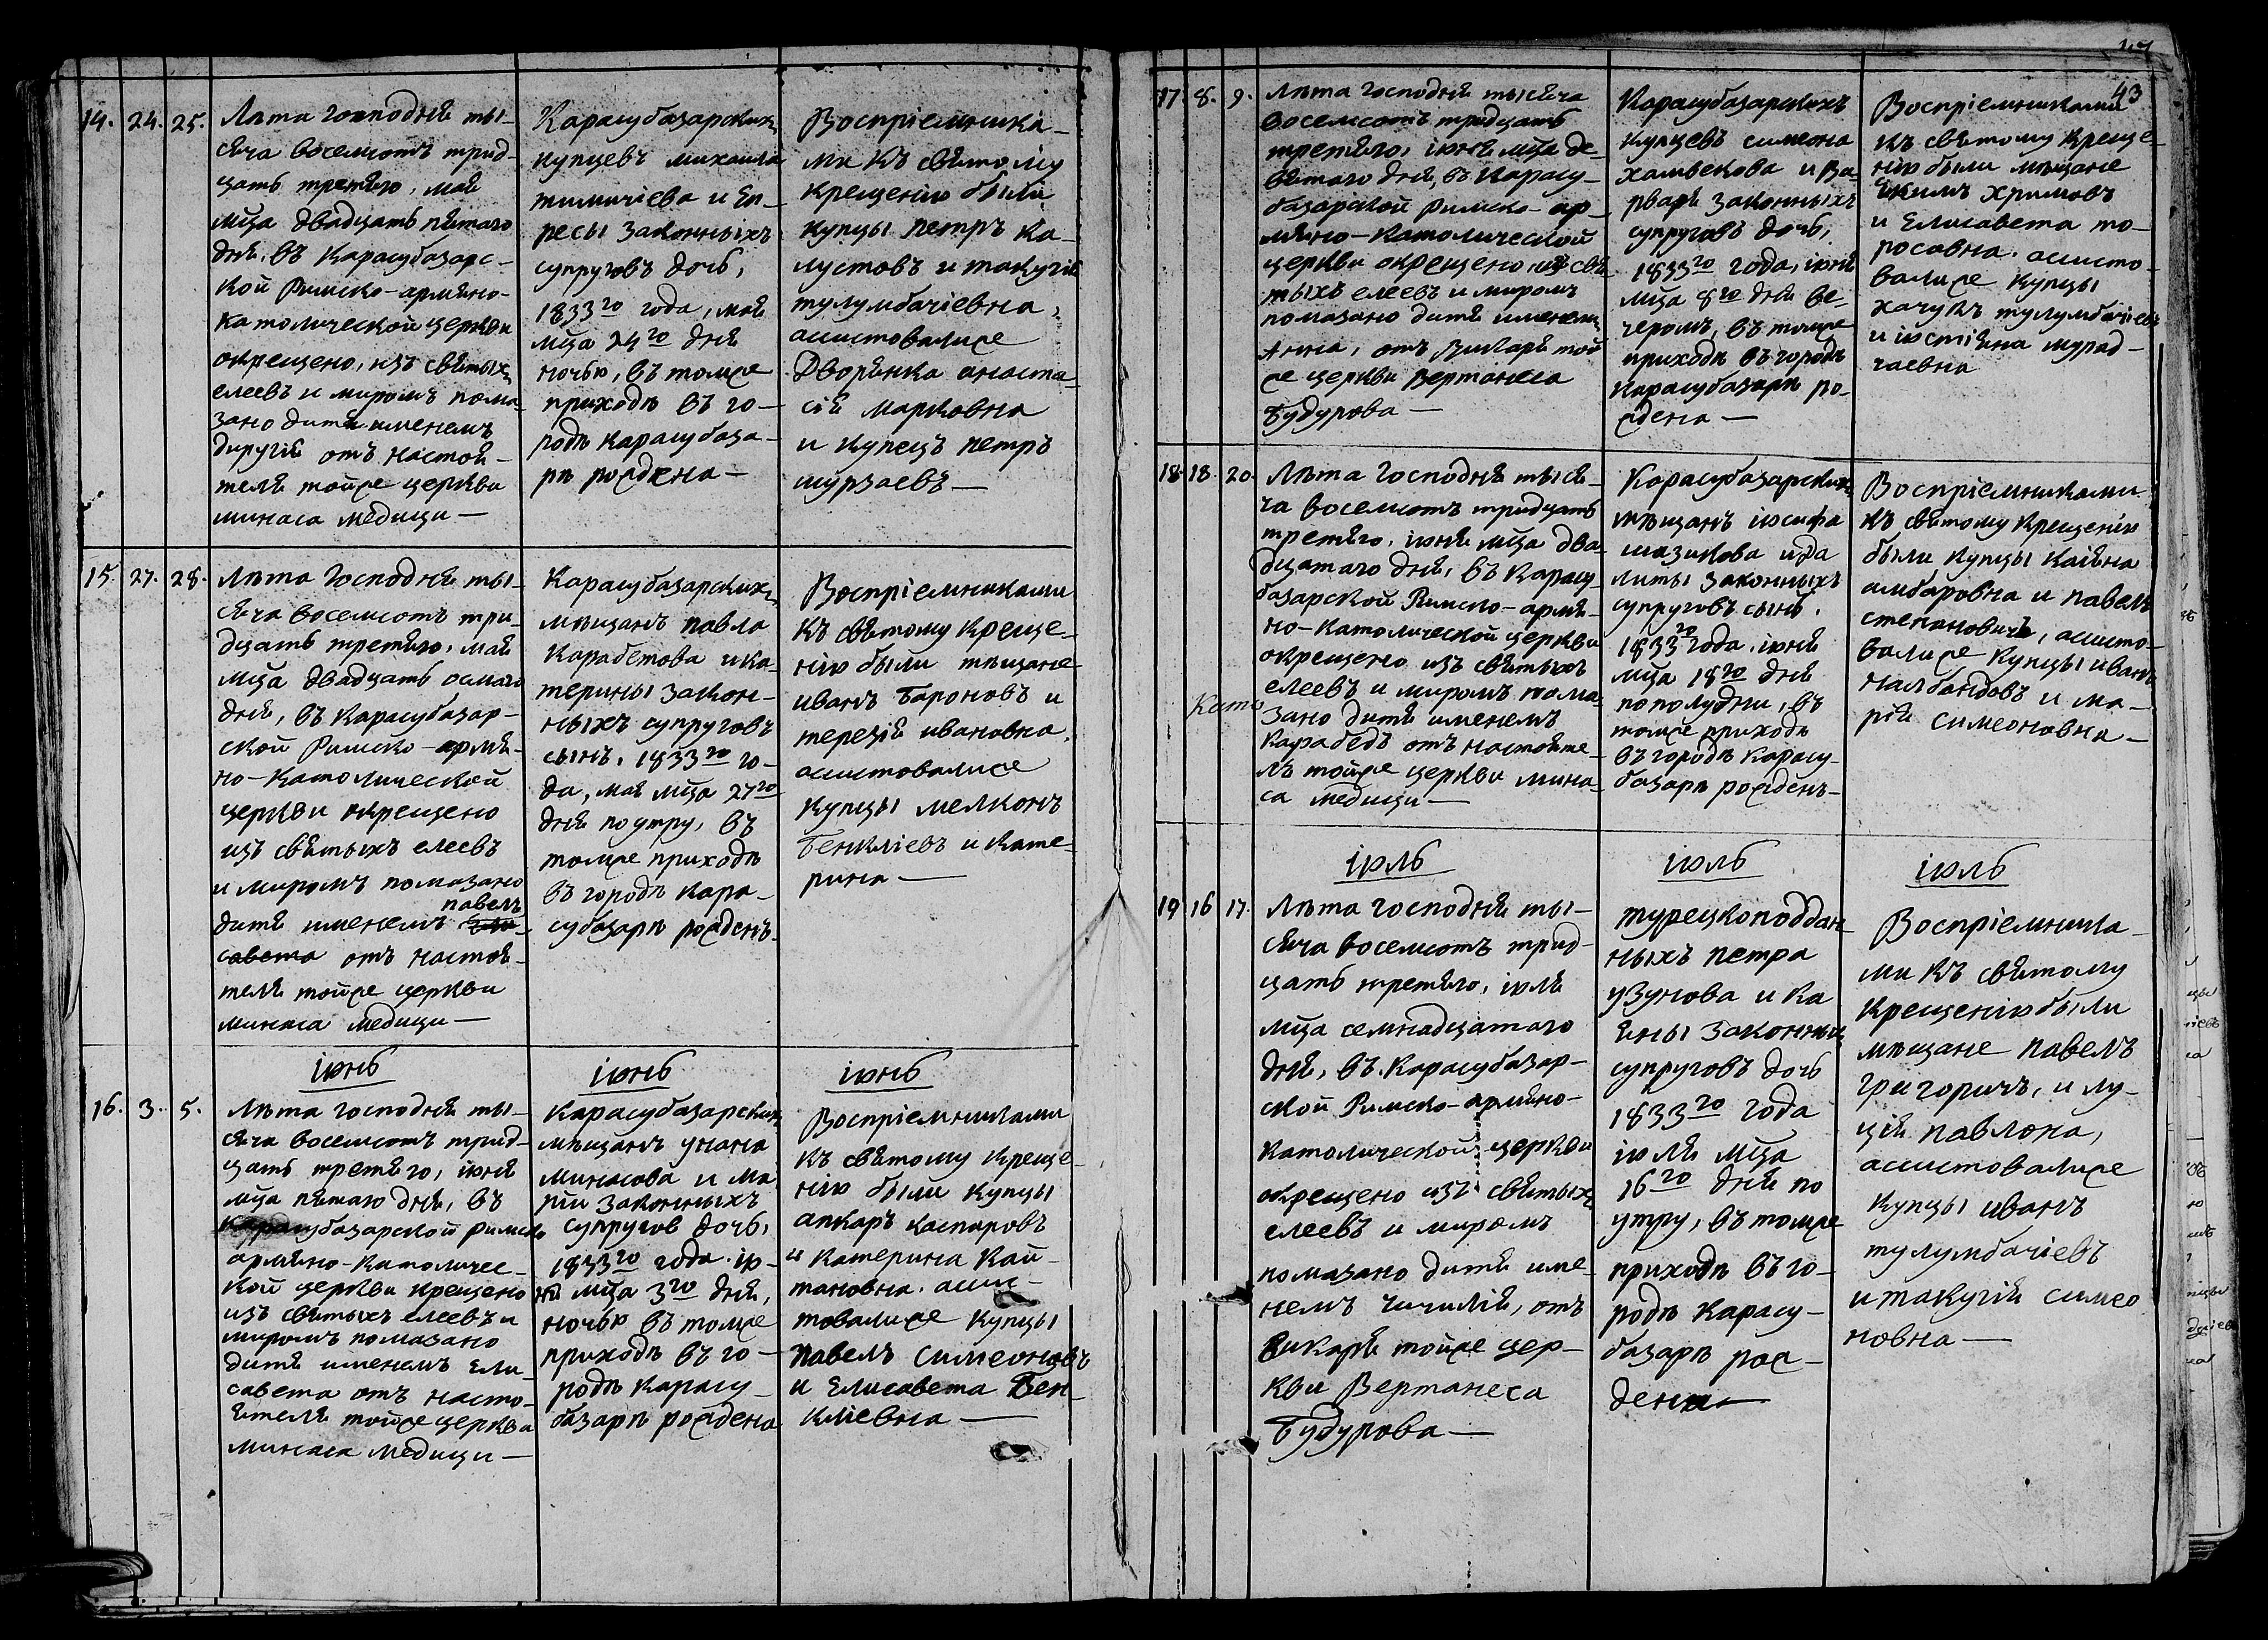 14. 24. 25.
Лѣта господня ты-
сяча восемсотъ трид-
цать третяго, мая
мца двадцать пятаго
дня, въ Карасубазарс-
кой Римско-армяно-
католической церкви
окрещено, изъ святыхъ
елеевъ и миромъ пома-
зано дитя именемъ
диругія отъ настоя-
теля тойже церкви
минаса медици—
Карасубазарскихъ
купцевъ михаила
тимичіева и Еп-
ресы законныхъ
супруговъ дочь,
1833го года, мая
мца 24го дня
ночью, въ томже
приходѣ въ го-
родѣ карасубаза-
рѣ рождена—
Воспріемника-
ми къ святому
крещенію были
купцы петръ ка-
лустовъ и такугія
тулумбачіевна,
асистовалисе
Дворянка анаста-
сія марковна
и купецъ петръ
мурзаевъ—
15. 27. 28.
Лѣта господня ты-
сяча восемсотъ три-
дцать третяго, мая
мца двадцать осмаго
дня, въ карасубазар-
ской Римско-армя-
но-католической
церкви окрещено
изъ святыхъ елеевъ
и миромъ помазано
павелъ
дитя именемъ Ели-
савета отъ настоя-
теля тойже церкви
минаса медици—
Карасубазарскихъ
мѣщанъ павла
Карабетова и ка-
терины закон-
ныхъ супруговъ
сынъ, 1833го го-
да, мая мца 27го
дня по утру, въ
томже приходѣ
въ городѣ кара-
субазарѣ рожденъ.
Воспріемниками
къ святому креще-
нію были мѣщане
иванъ Бароновъ и
терезія ивановна,
асистовалисе
купцы мелконъ
Бенкліевъ и кате-
рина—
іюнь
іюнь
іюнь
16. 3. 5.
Лѣта господня ты-
сяча восемсотъ трид-
цать третяго, іюня
мца пятаго дня, въ
карасубазарской римско
армяно-католичес-
кой церкви крещено
изъ святыхъ елеевъ и
миромъ помазано
дитя именемъ Ели-
савета отъ насто-
ятеля тойже церква
минаса медици—
Карасубазарскихъ
мѣщанъ унана
минасова и ма
ріи законныхъ
супругов дочь,
1833го года. ію-
ня мца 3го дня,
ночью въ томже
приходѣ въ го-
родѣ карасу-
базарѣ рождена
Воспріемниками
къ святому креще-
нію были купцы
апкаръ каспаровъ
и катерина кай-
тановна. асис-
товалисе купцы
павелъ симеоновъ
и Елисавета Бен-
кліевна—
43
17. 8. 9.
Лѣта господня тысяча
восемсотъ тридцать
третяго, іюня мца де-
вятаго дня, въ карасу-
базарской римско-ар-
мяно-католической
церкви окрещено, из свя
тыхъ елеевъ и миромъ
помазано дитя именемъ
Анна, отъ викаря той
же церкви вертанеса
Будурова—
Карасубазарскихъ
купцевъ симеона
халвекова и ва-
рвари законныхъ
супруговъ дочь,
1833го года, іюня
мца 8го дня ве-
черомъ, въ томже
приходѣ въ городѣ
карасубазарѣ ро-
ждена—
Воспріемниками
къ святому креще-
нію были мѣщане
Екимъ хримовъ
и Елисавета то-
росовна. асисто-
валисе купцы
хачукъ тулумбачіевъ
и іюстіяна мурад-
чаевна
18. 18. 20.
Лѣта господня тыся-
ча восемсотъ тридцать
третяго, іюня мца два-
дцатаго дня, въ карасу-
базарской Римско-армя-
но-католической церкви
окрещено изъ святыхъ
елеевъ и миромъ пома-
зано дитя именемъ
Карабедъ отъ настояте-
ля тойже церкви мина-
са медици—
Като
Карасубазарскихъ
мѣщанъ іосифа
мазикова и да
литы законныхъ
супруговъ сынъ,
1833го года. іюня
мца 18го дня
по полудни, въ
томже приходѣ
въ городѣ карасу-
базарѣ рожденъ—
Воспріемниками
къ святому крещенію
были купцы каіяна
амбаровна и павелъ
степановичъ, асисто-
валисе купцы иванъ
налбандовъ и ма-
рія симеоновна—
іюль
іюль
іюль
19 16 17.
Лѣта господня ты-
сяча восемсотъ трид-
цать третяго, іюля
мца семнадцатаго
дня, въ карасубазар-
ской Римско-армяно-
католической церкви
окрещено изъ святыхъ
елеевъ и миромъ
помазано дитя име-
немъ чичилія, отъ
викаря тойже цер-
кви Вертанеса
Будурова—
турецкоподдан-
ныхъ петра
узунова и ка
яны законныхъ
супруговъ дочь
1833го года
іюля мца
16го дня по
утру, въ томже
приходѣ въ го-
родѣ карасу-
базарѣ рож-
дена—
Воспріемника-
ми къ святому
крещенію были
мѣщане павелъ
григоричъ, и лу-
ція павлона,
асистовалисе
купцы иванъ
тулумбачіевъ
и такугія симео
новна—